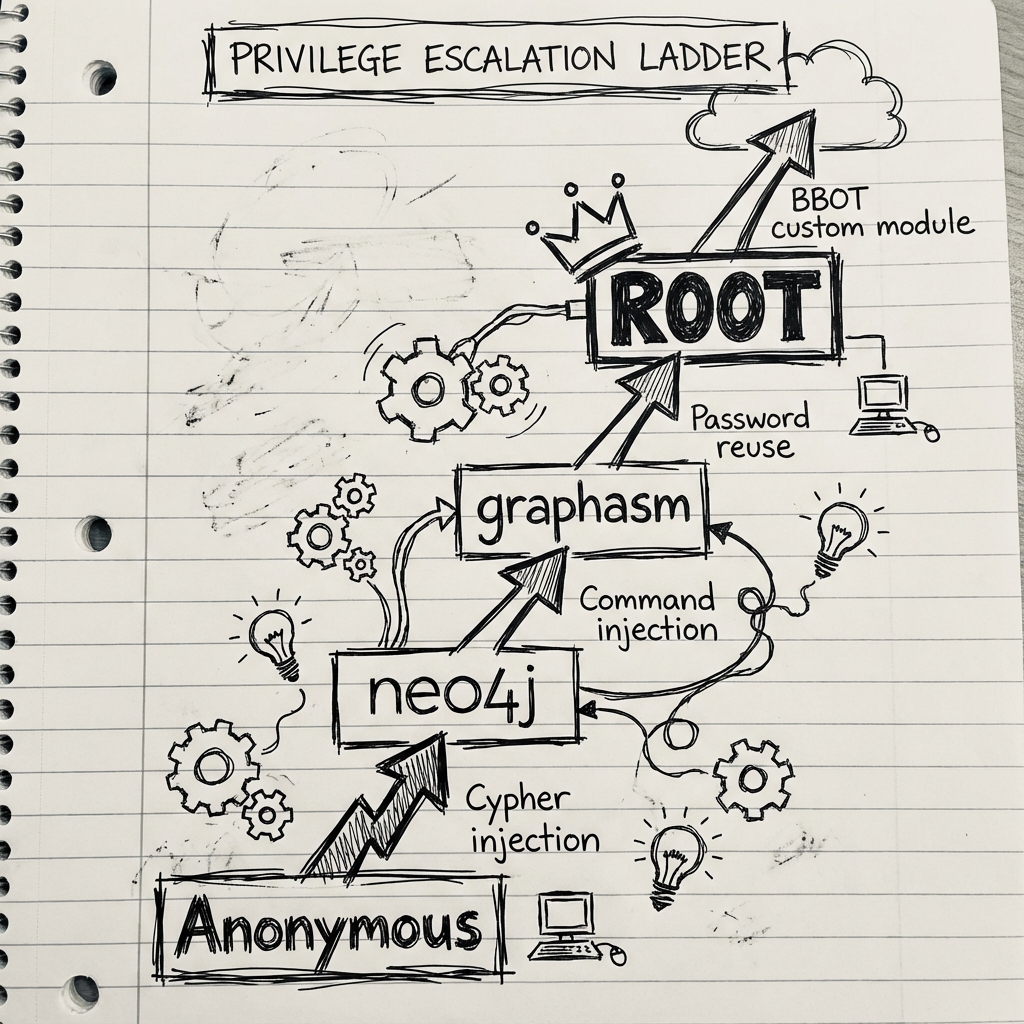 PRIVILEGE ESCALATION LADDER
BBOT
custom module
ROOT
Password
reuse
graphasm
Command
injection
neo4j
Cypher
injection
Anonymous